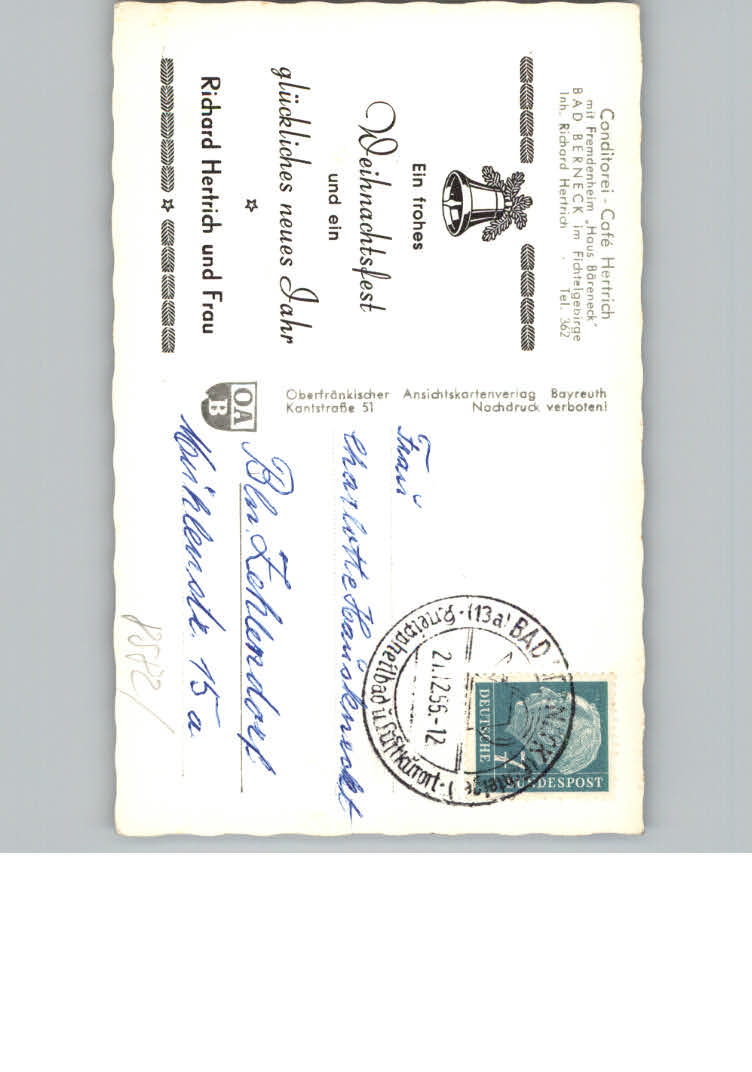 Conditorei - Café Hertrich
mit Fremdenheim „Haus Bäreneck"
BAD BERNECK im Fichtelgebirge
Inh. Richard Hertrich · Tel. 362
Ein frohes
Weihnachtsfest
und ein
glückliches neues Jahr
Richard Hertrich und Frau
Oberfränkischer Ansichtskartenverlag Bayreuth
Kantstraße 51 Nachdruck verboten!
OA
B
Frau
Charlotte Hausknecht
Bln. Zehlendorf
Mühlenstr. 15 a
(13a) BAD
21.12.56.-12
Kneippheilbad u. Luftkurort
DEUTSCHE
BUNDESPOST